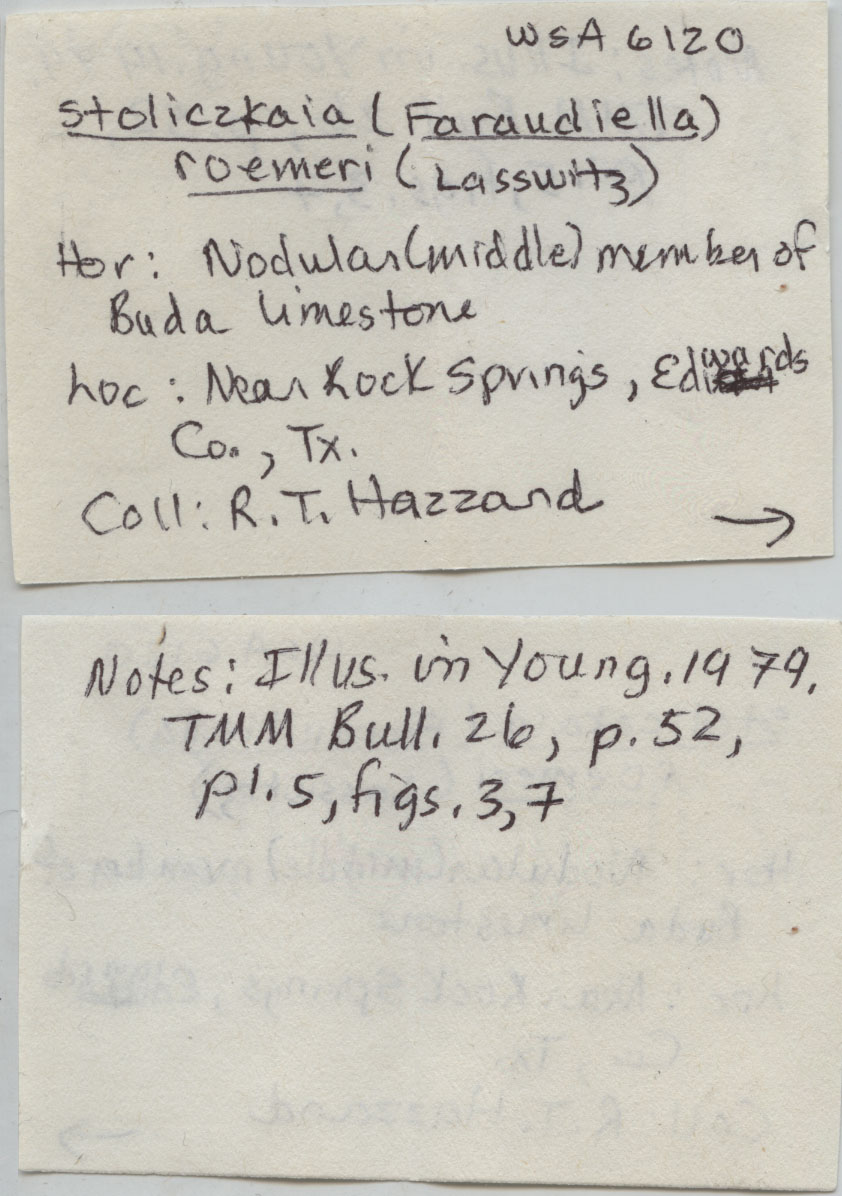 WSA 6120
Stoliczkaia (Faraudiella)
roemeri (Lasswitz)
Hor: Nodular (middle) member of
Buda limestone
Loc: Near Rock Springs, Edwards
Co., Tx.
Coll: R.T. Hazzard
→
Notes: Illus. in Young. 1979.
TMM Bull. 26, p. 52,
pl. 5, figs. 3,7